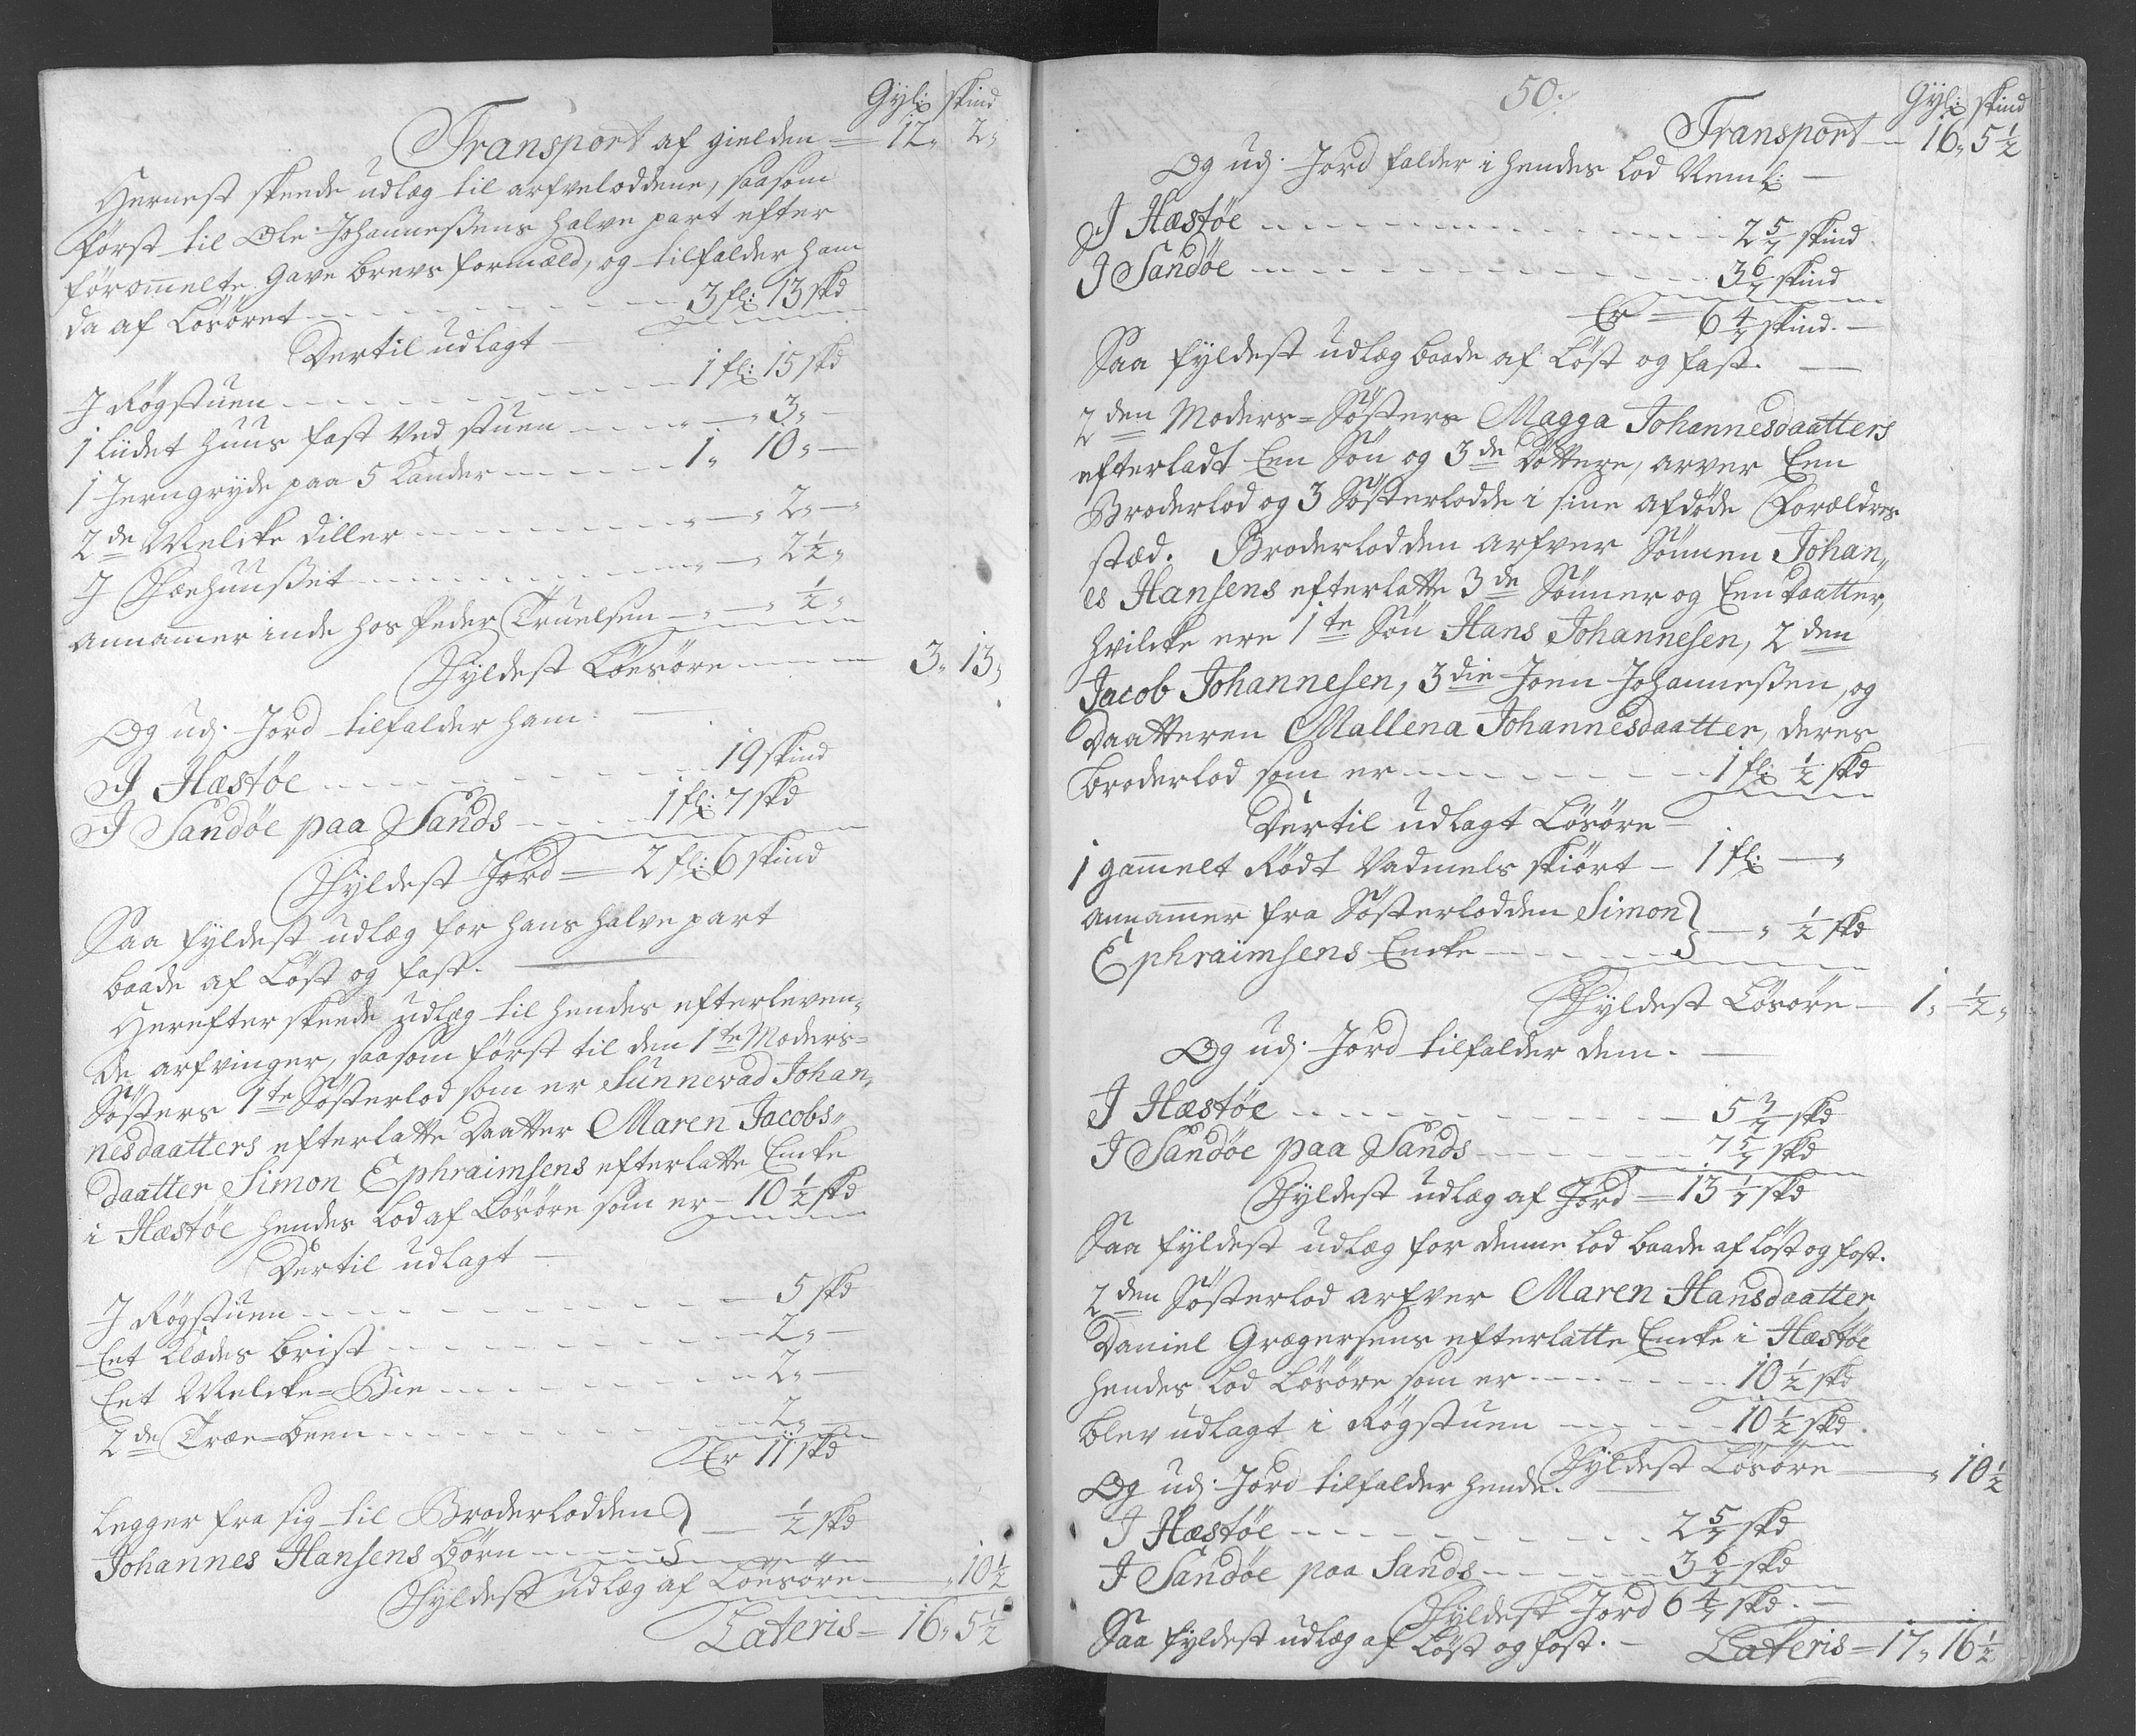 Gyl: skind
Transport af gielden = 12„ 2„
Hernest skeede udlæg til arfvelodderne, saasom
først til Ole Johanneßens halve part efter
førommelte Gave brevs formæld, og tilfalder ham
da af Løsøret - - - 3 fl: 13 skd
Dertil udlagt —
J Røgstuen - - - 1 fl: 15 skd
1 liidet huus fast ved stuen - - - „ — „ 3„ —
1 Jerngryde paa 5 Kander - - - 1„ 10„ —
2de Melcke diller - - - „ — „ 2„ — „
J Fæehuußet - - - „ — „ 2½„
annammer inde hos Peder Truelsen - „ — „ ½„
Fyldest Løesøre - - - 3„ 13„
Og udj Jord tilfalder ham: —
J Hæstøe - - - 19 skind
J Sandøe paa Sands - - - 1 fl: 7 skd
Fyldest Jord = 2 fl: 6 skind
Saa fyldest udlæg for hans halve part
baade af Løst og fast. —
Herefter skeede udlæg til hendes efterleven„
de arfvinger, saasom først til den 1te Moders=
Søsters 1te Søsterlod som er Sunnevad Johan„
nesdaatters efterlatte Daatter Maren Jacobs„
daatter Simon Ephraimsens efterlatte Encke
i Hæstøe hendes Lod af Løsøre som er - 10½ skd
Dertil udlagt —
J Røgstuen - - - 5 skd
Eet Klædes brist - - - 2„ —
Eet Melcke=Bie - - - 2„ —
2de Træe=been - - - 2„ —
Er 11 skd
Legger fra sig til Broderlodden } — ½ skd
Johannes Hansens børn - - -
Fyldest udlæg af Løesøre — „ 10½
Lateris = 16„ 5½
50.
Gyl: skind
Transport — 16„ 5½
Og udj Jord falder i hendes Lod Neml: —
J Hæstøe - - - 2 5/7 skind
J Sandøe - - - 3 6/7 skind
Er = 6 4/7 skind. —
Saa fyldest udlæg baade af Løst og fast. —
2den Moders=Søsters Magga Johannesdaatters
efterladt Een Søn og 3de Døttere, arver Een
Broderlod og 3 Søsterlodde i sine afdøde Forældres
stæd. Broderlodden arfver Sønnen Johan„
es Hansens efterlatte 3de Sønner og Een Daatter,
hvilcke ere 1te Søn Hans Johannesen, 2den
Jacob Johannesen, 3die Joen Johanneßen, og
Daatteren Mallena Johannesdaatter, deres
broderlod som er - - - 1 fl: ½ skd
Dertil udlagt Løsøre —
1 gammelt Rødt Vadmels skiørt - 1 fl: — „
annammer fra Søsterlodden Simon } — „ ½ skd
Ephraimsens Encke - - -
Fyldest Løsøre — 1„ ½„
Og udj Jord tilfalder dem. —
J Hæstøe - - - 5 3/7 skd
J Sandøe paa Sands - - - 7 5/7 skd
Fyldest udlæg af Jord = 13 1/7 skd
Saa fyldest udlæg for denne Lod baade af løst og fast.
2den Søsterlod arfver Maren Hansdaatter,
Daniel Grægersens efterlatte Encke i Hæstøe
hendes Lod Løsøre som er - - - 10½ skd
blev udlagt i Røgstuen - - - 10½ skd.
Fyldest Løsøre — „ 10½
Og udj Jord tilfalder hende. —
J Hæstøe - - - 2 5/7 skd
J Sandøe paa Sands - - - 3 6/7 skd
Fyldest Jord 6 4/7 skd. —
Saa fyldest udlæg af Løst og fast. — Lateris = 17„ 16½